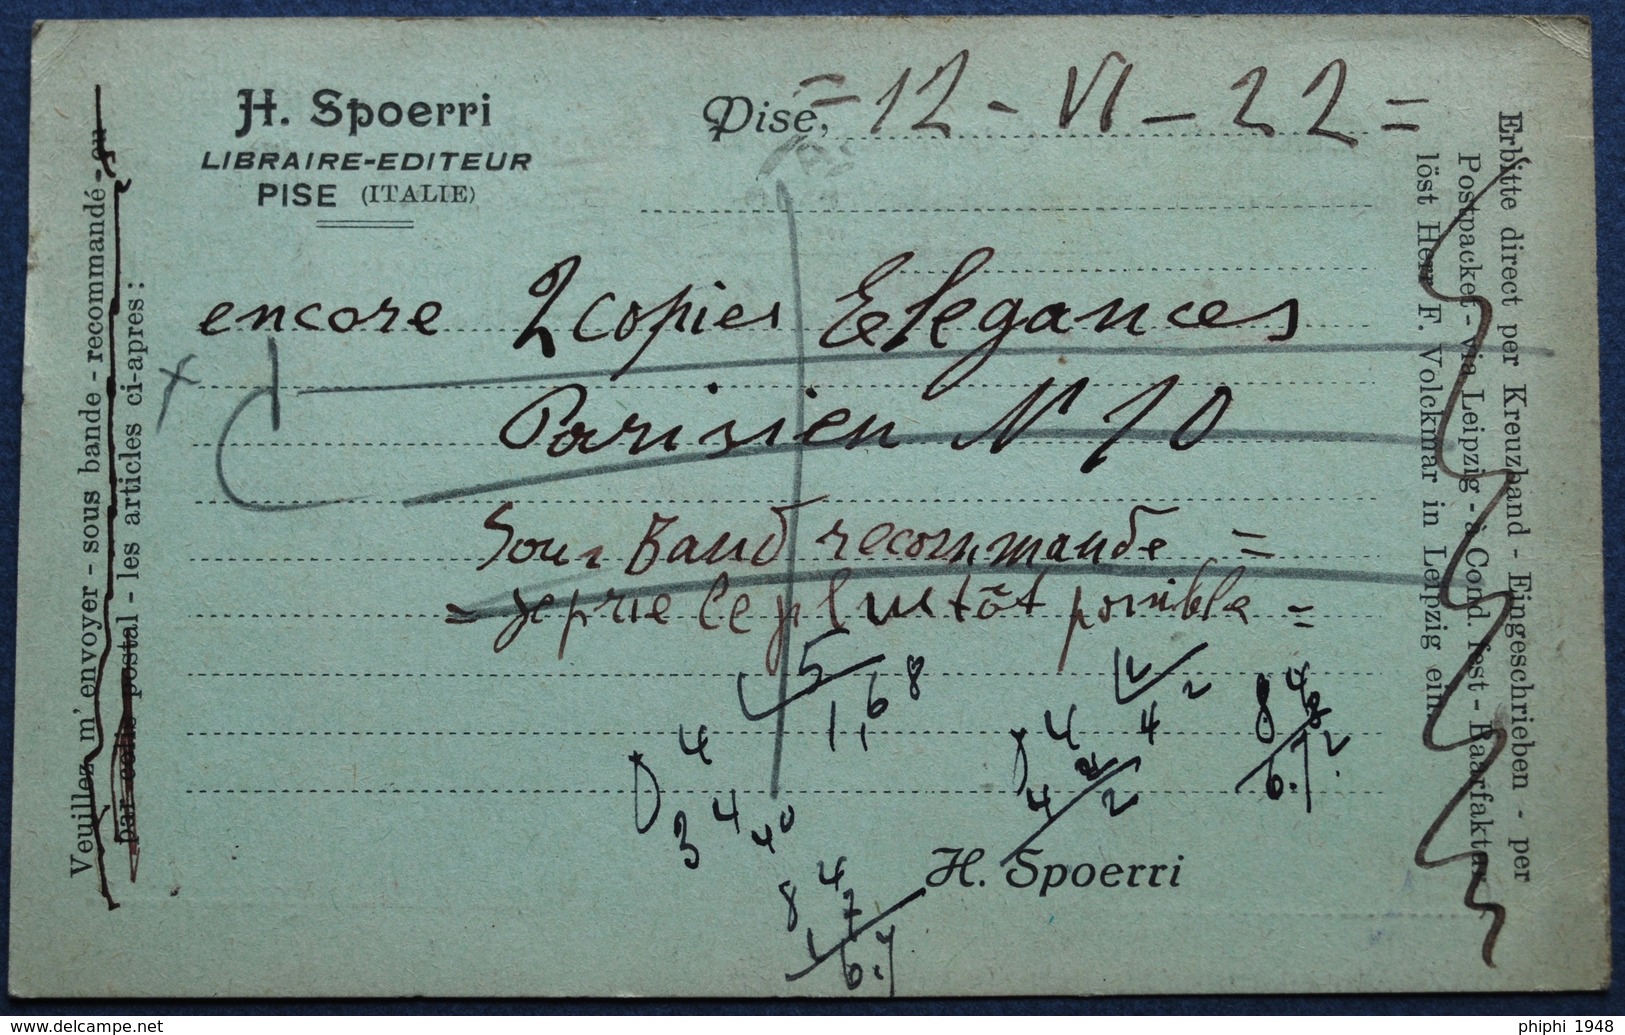 H. Spoerri
LIBRAIRE-EDITEUR
PISE (ITALIE)
Pise, = 12 - VI - 22 =
encore 2 copies Elegances
Parisien N 10
Sous Band recommande =
= je prie le plustôt possible =
5
1,68
4
4
8 4
6.72
3 4 40
8 4
6.7
H. Spoerri
Veuillez m'envoyer - sous bande - recommandé - ou
par colis postal - les articles ci-apres:
Erbitte direct per Kreuzband - Eingeschrieben - per
Postpacket - via Leipzig - à Cond. fest - Baarfaktur
löst Herr F. Volckmar in Leipzig ein.
www.delcampe.net
phiphi 1948